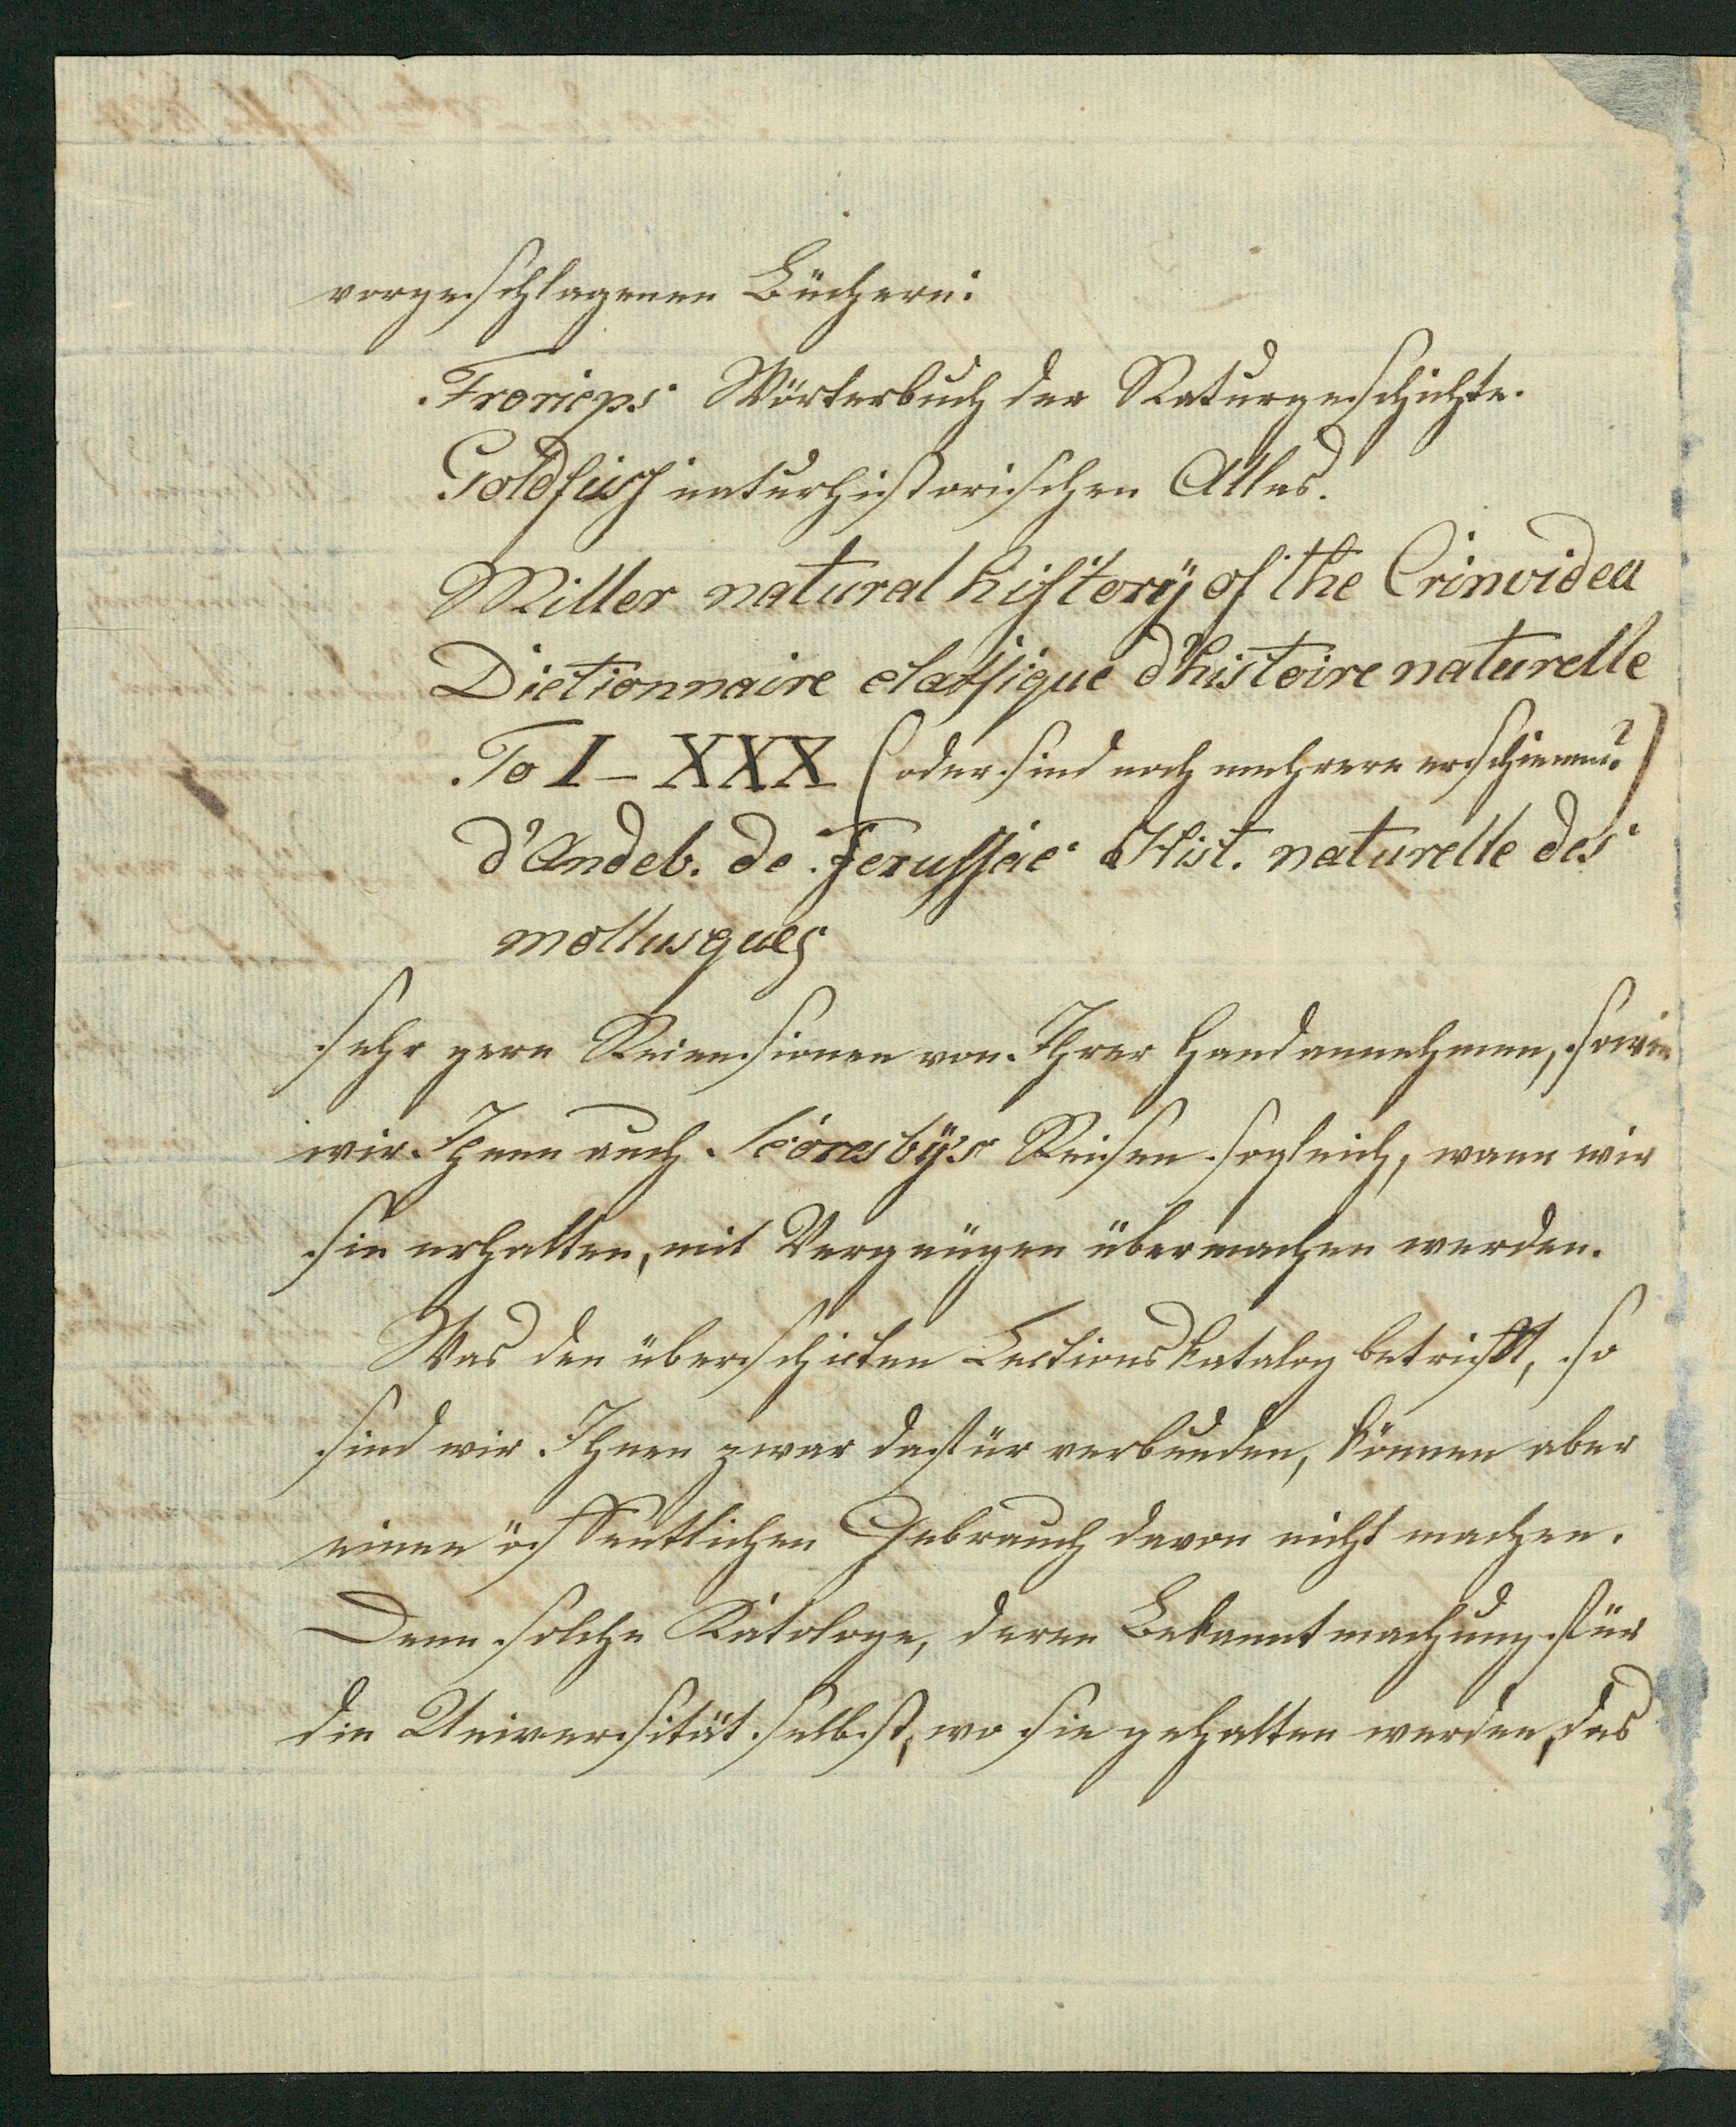 vorgeschlagenen Büchern:
Frorieps Wörterbuch der Naturgeschichte.
Goldfuss naturhistorischen Atlas.
Miller natural history of the Crinoidea
Dictionnaire classique d'histoire naturelle
To I – XXX (oder sind noch mehrere erschienen?)
d'Audeb. de Ferussac Hist. naturelle des
mollusques
sehr gern Recensionen von Ihrer Hand annehmen, sowie
wir Ihnen auch Scoresbys Reisen sogleich, wann wir
sie erhalten, mit Vergnügen übermachen werden.
Was den überschickten Lectionskatalog betrifft, so
sind wir Ihnen zwar dafür verbunden, können aber
einen öffentlichen Gebrauch davon nicht machen.
Denn solche Kataloge, deren Bekanntmachung für
die Universität selbst, wo sie gehalten werden, das